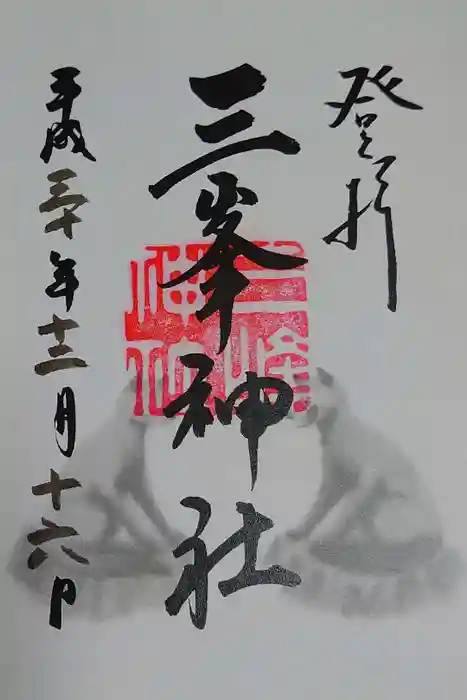 登拝
三峯神社
平成三十年十二月十六日